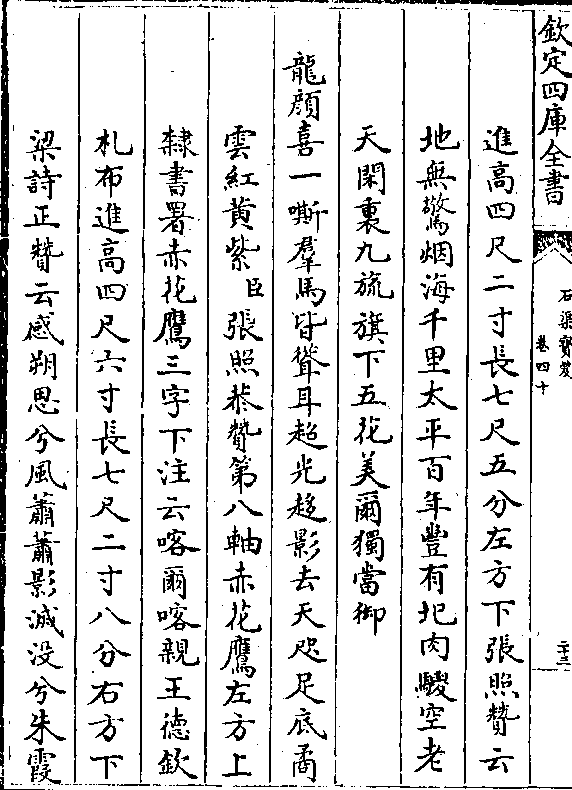 欽定四庫全書
石渠寶笈
卷四十
二十三
進高四尺二寸長七尺五分左方下張照贊云
地無驚烟海千里太平百年豐有圯肉騣空老
天閑裏九旒旗下五花美爾獨當御
龍顔喜一嘶羣馬皆聳耳超光趁影去天咫足底矞
雲紅黄紫臣張照恭贊第八軸赤花鷹左方上
隸書署赤花鷹三字下注云喀爾喀親王德欽
札布進高四尺六寸長七尺二寸八分右方下
梁詩正贊云感朔思兮風蕭蕭影滅没兮朱霞